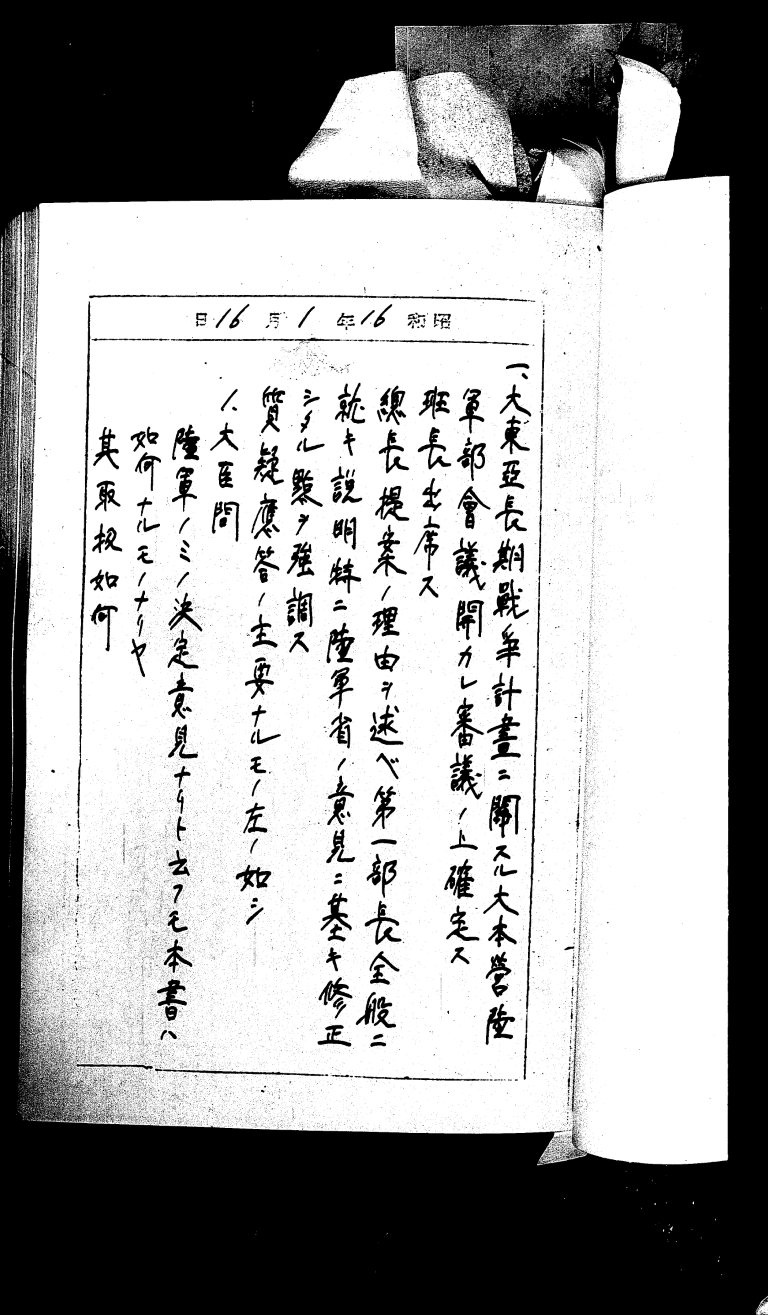 昭和16年1月16日
一、大東亞長期戰爭計畫ニ關スル大本營陸
軍部會議開カレ審議ノ上確定ス
班長出席ス
總長提案ノ理由ヲ述ベ第一部長全般ニ
就キ説明特ニ陸軍省ノ意見ニ基キ修正
シタル點ヲ強調ス
質疑應答ノ主要ナルモノ左ノ如シ
1、大臣問
陸軍ノミノ決定意見ナリト云フモ本書ハ
如何ナルモノナリヤ
其取扱如何